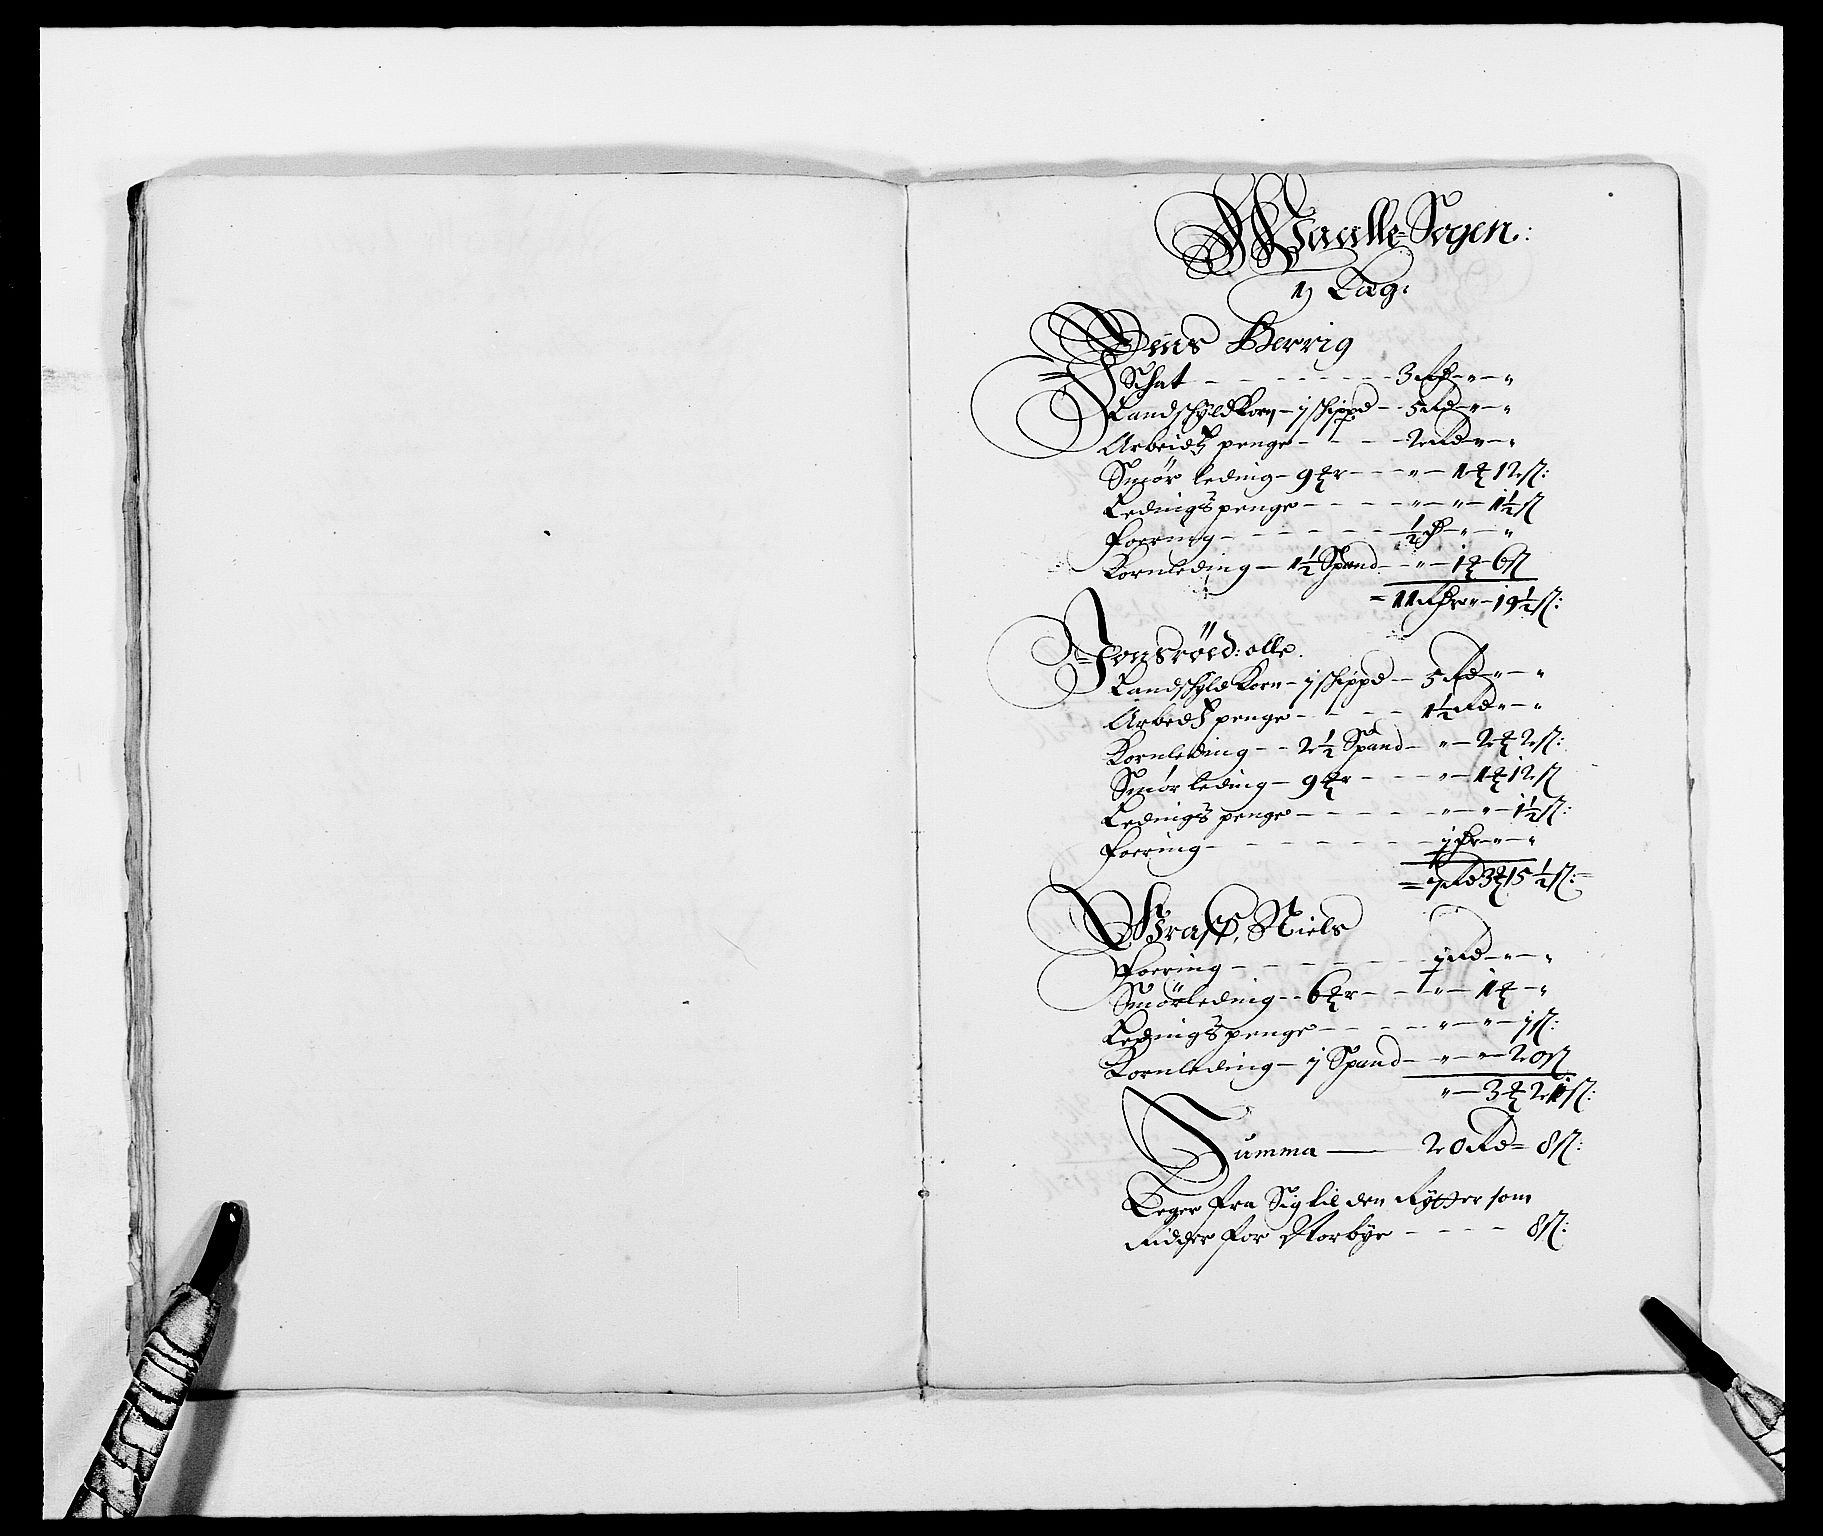 Waalle Sogen:
1 Læg:
Jens Berrig
Schat - - - - - - 3 Rd - " - "
Landschyld Korn - j schippd - 5 Rd - " - "
Arbeidtz penge - - - 2 Rd - " - "
Smør leding - 9 ℔r - - - " - 1 ℔ 12 s:
Ledings penge - - - - " - " - 1½ s
Foering - - - - - ½ Rd - " - "
Kornleding - 1½ Spand - " - 1 ℔ 6 s
= 11 Rdr " - 19½ s:
Jonsrøed: olle.
Landschyld Korn - j schippd - 5 Rd - " - "
Arbeds penge - - - - 1½ Rd " - "
Kornleding - - 2½ Spand - " - 2 ℔ 2 s:
Smør leding - 9 ℔r - - - " - 1 ℔ 12 s
Ledings penge - - - - - " - " - 1½ s:
Foering - - - - - - j Rdr - " - "
= 7 Rd 3 ℔ 15½ s: =
Niels
Foering - - - - - - j Rd - " - "
Smørleding - - 6 ℔r - - - " - 1 ℔ - "
Ledings penge - - - - " - " - j s:
Kornleding - j Spand - " - " - 20 s
" - 3 ℔ 21 s:
Summa — 20 Rd = 8 s:
Leger fra Sig til den Rytter som
Ridder for Norbye - - - - 8 s: